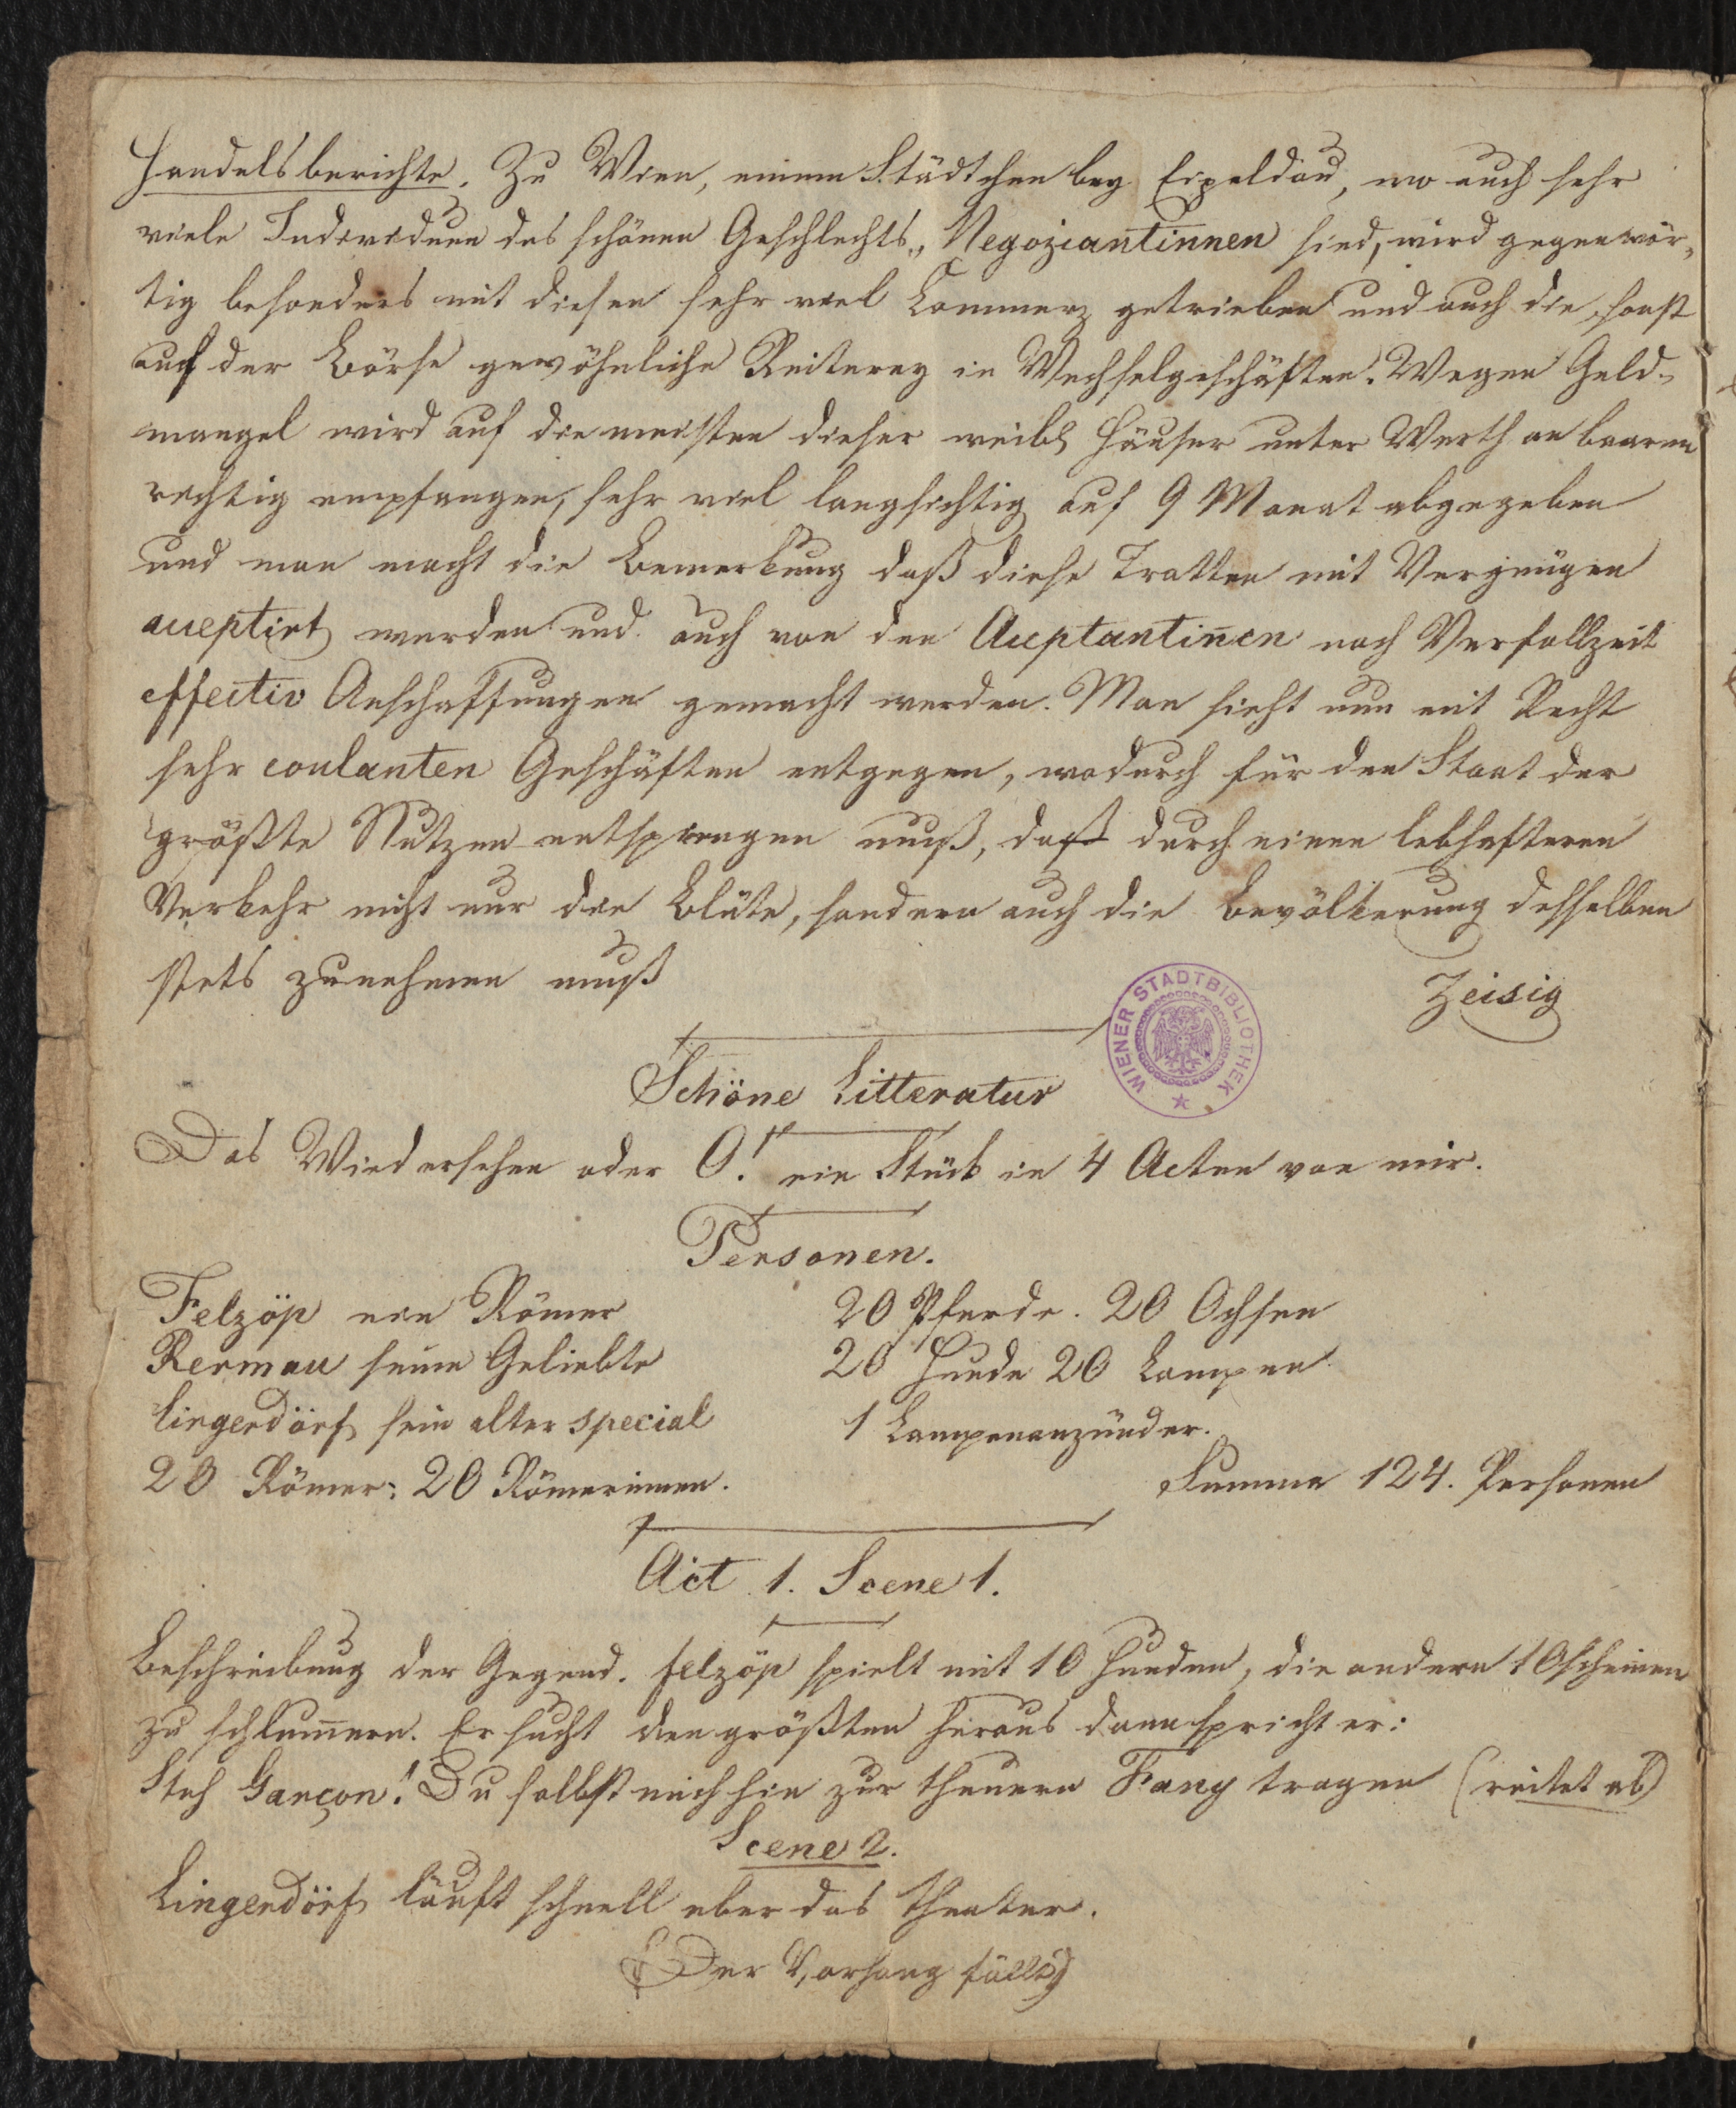 Handelsberichte. Zu Wien, einem Städtchen bey Eipeldau, wo auch sehr
viele Individuen des schönen Geschlechts „Negoziantinnen sind, wird gegenwär-
tig besonders mit diesen sehr viel Commerz getrieben und auch die sonst
auf der Börse gewöhnliche Reiterey in Wechselgeschäften. Wegen Geld-
mangel wird auf die meisten dieser weibl Häuser unter Werth an baarem
richtig empfangen, sehr viel langsichtig auf 9 Monat abgegeben
und man macht die Bemerkung daß diese Tratten mit Vergnügen
acceptirt werden und auch von den Acceptantin̄en nach Verfallzeit
effectiv Anschaffungen gemacht werden. Man sieht nun mit Recht
sehr coulanten Geschäften entgegen, wodurch für den Staat der
größte Nutzen entspringen muß, daß durch einen lebhafteren
Verkehr nicht nur die Blüte, sondern auch die Bevölkerung desselben
stets zunehmen muß
Zeisig
WIENER STADTBIBLIOTHEK
Schöne Litteratur
Das Wiedersehen oder O! ein Stück in 4 Acten von mir.
Personen.
Felzöp ein Römer 20 Pferde. 20 Ochsen
Rermau seine Geliebte 20 Hunde 20 Lampen
Lingerdörf sein alter special 1 Lampenanzünder.
20 Römer: 20 Römerinnen. Summa 124. Personen
Act 1. Scene 1.
Beschreibung der Gegend. Felzöp spielt mit 10 Hunden, die andern 10 scheinen
zu schlum̄ern. Er sucht den größten heraus dann spricht er:
Steh Garçon! Du sollst mich hin zur theuern Fany tragen (reitet ab)
Scene 2.
Lingerdörf läuft schnell über das Theater.
(Der Vorhang fällt)